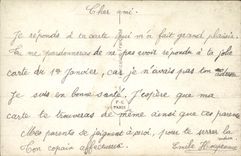 Cher ami.
Je réponds à ta carte qui m'a fait grand plaisir.
Tu me pardonneras de ne pas avoir répondu à ta jolie
carte du 1er Janvier, car je n'avais pas ton adresse
Je suis en bonne santé, J'espère que ma
carte te trouveras de même ainsi que tes parents
Mes parents se joignent à moi, pour te serrer la
Ton copain affectueux.
Emile